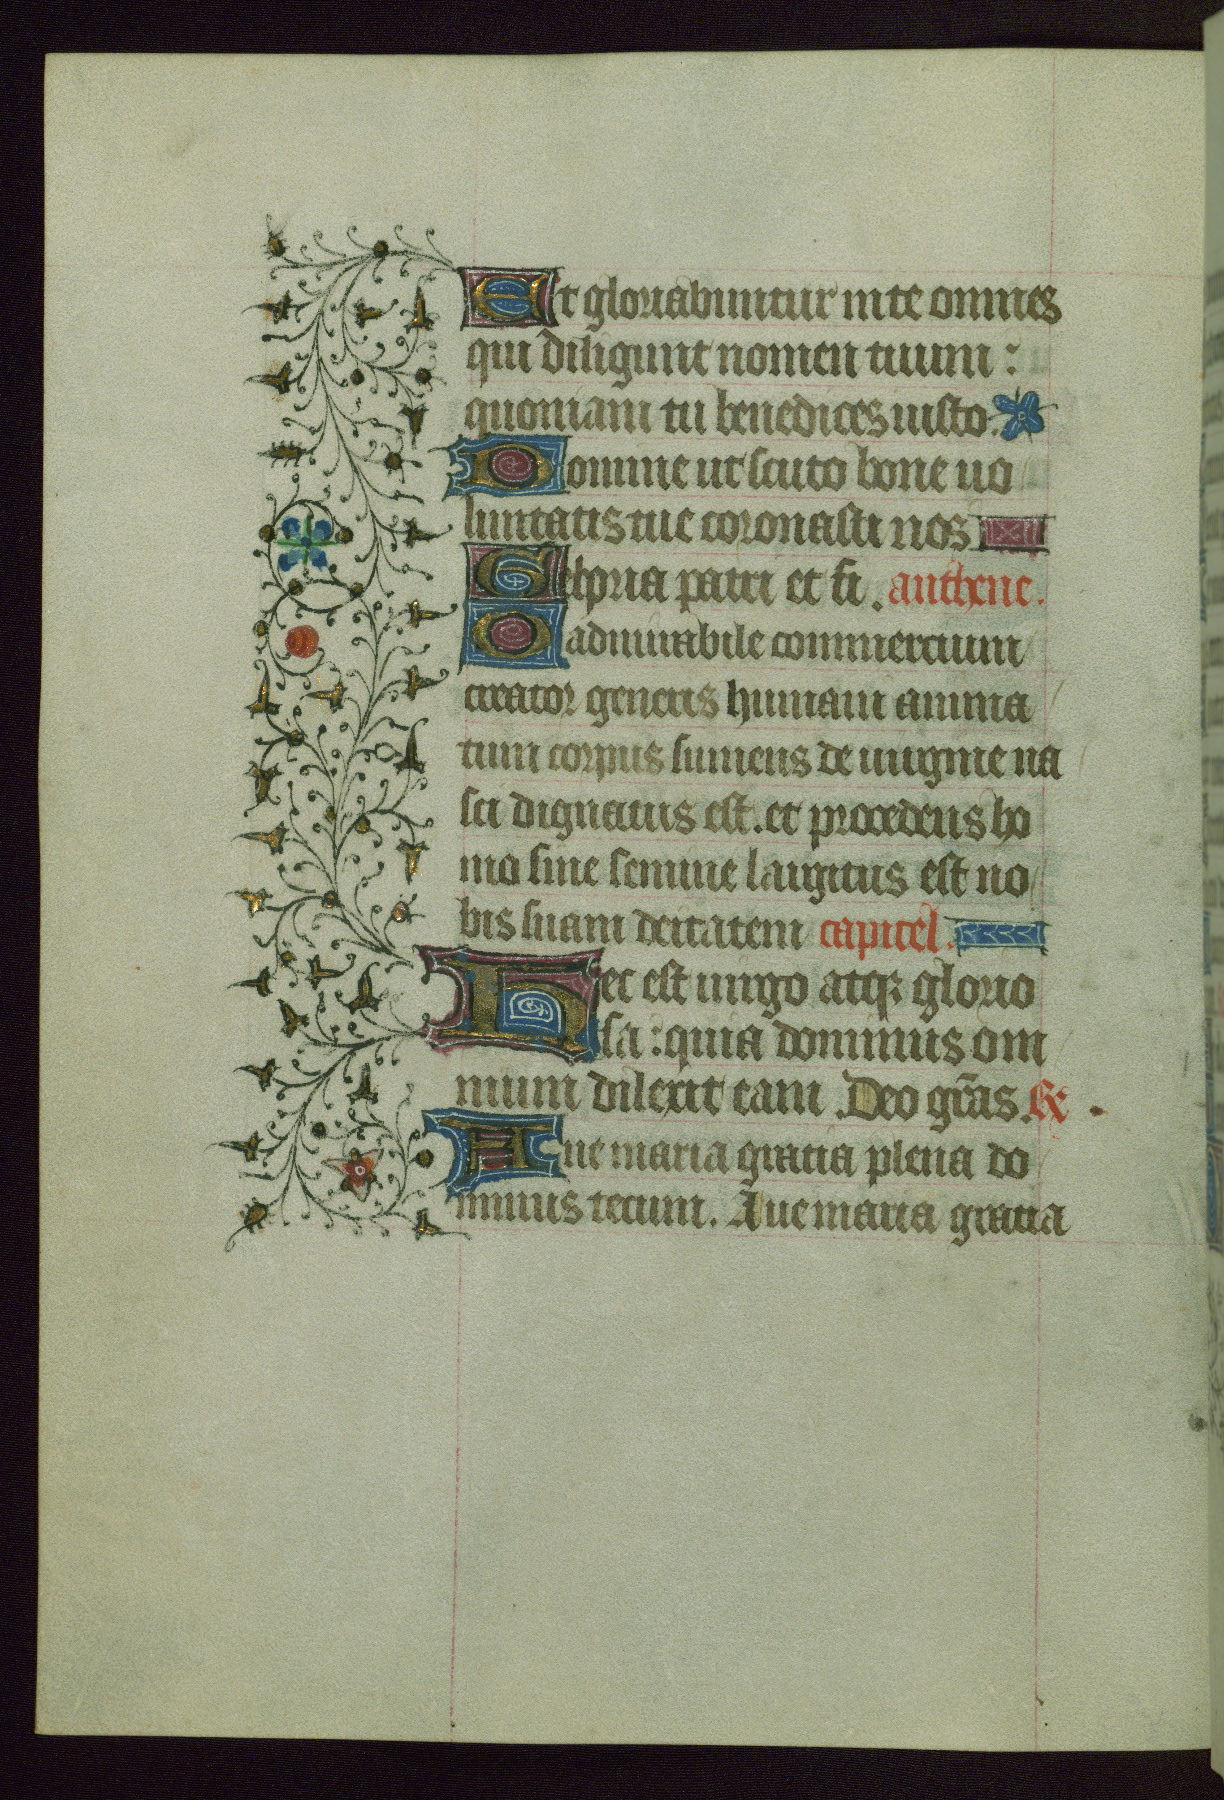 Et gloriabuntur in te omnes
qui diligunt nomen tuum :
quoniam tu benedices iusto.
Domine ut scuto bone uo
luntatis tue coronasti nos
Gloria patri et fi. anthene.
O admirabile commercium
creator generis humani anima
tum corpus sumens de uirgine na
sci dignatus est. et procedens ho
mo sine semine largitus est no
bis suam deitatem capitel.
Hec est uirgo atqꝫ glorio
sa : quia dominus om
nium dilexit eam Deo gr̃as. ℞
Aue maria gratia plena do
minus tecum. Aue maria gratia